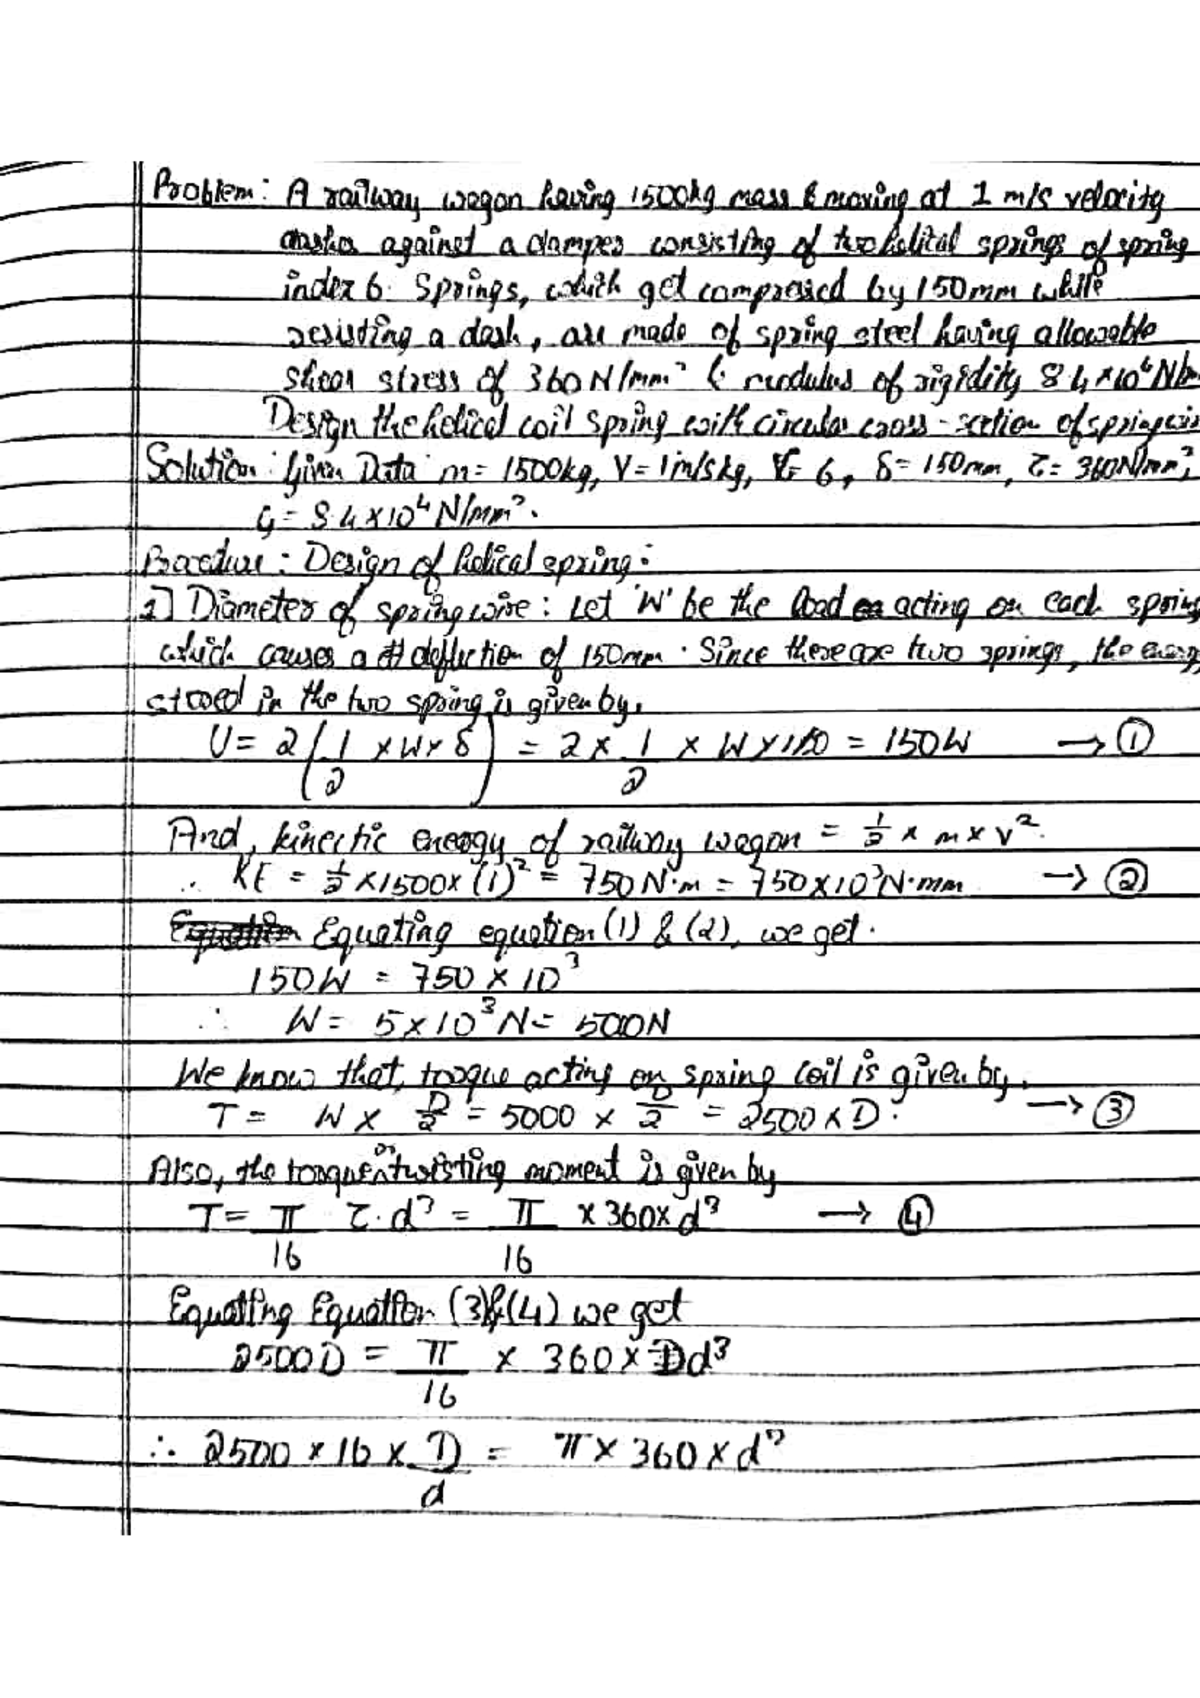 Problem: A railway wagon having 1500kg mass & moving at 1 m/s velocity
dashes against a damper consisting of two helical springs of spring
index 6. Springs, which get compressed by 150mm while
resisting a dash, are made of spring steel having allowable
shear stress of 360 N/mm² & modulus of rigidity 8.4×10⁴ N/m
Design the helical coil spring with circular cross-section of spring wi
Solution: Given Data: m = 1500kg, V = 1m/s kg, C = 6, δ = 150mm, τ = 360N/mm²,
G = 8.4×10⁴ N/mm².
Procedure: Design of helical spring:
1) Diameter of spring wire: Let 'W' be the load acting on each spring
which causes a deflection of 150mm. Since there are two springs, the energy
stored in the two spring is given by,
U = 2 (1/2 × W × δ) = 2 × 1/2 × W × 150 = 150W → ①
And, kinectic energy of railway wagon = 1/2 × m × v².
∴ KE = 1/2 × 1500 × (1)² = 750 N·m = 750×10³ N·mm → ②
Equating equation (1) & (2), we get.
150W = 750 × 10³
∴ W = 5×10³ N = 5000N
We know that, torque acting on spring coil is given by,
T = W × D/2 = 5000 × D/2 = 2500 × D. → ③
Also, the torque or twisting moment is given by
T = π/16 τ·d³ = π/16 × 360 × d³ → ④
Equating Equation (3)&(4) we get
2500D = π/16 × 360 × d³
∴ 2500 × 16 × D/d = π × 360 × d²